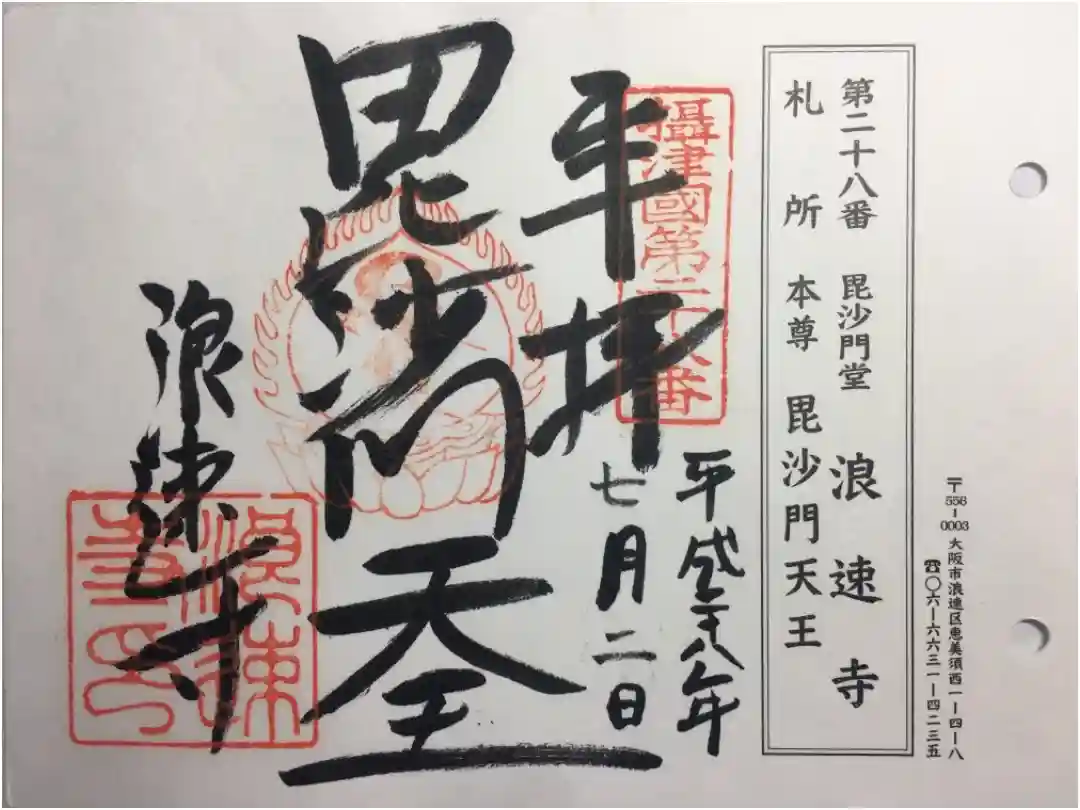 〒556-0003 大阪市浪速区恵美須西一ー四ー八
☎〇六ー六六三一ー四二三五
第二十八番 毘沙門堂 浪速寺
札所 本尊 毘沙門天王
攝津國第二十八番
奉拝
平成二十八年
七月二日
毘沙門天王
浪速寺
浪速寺印